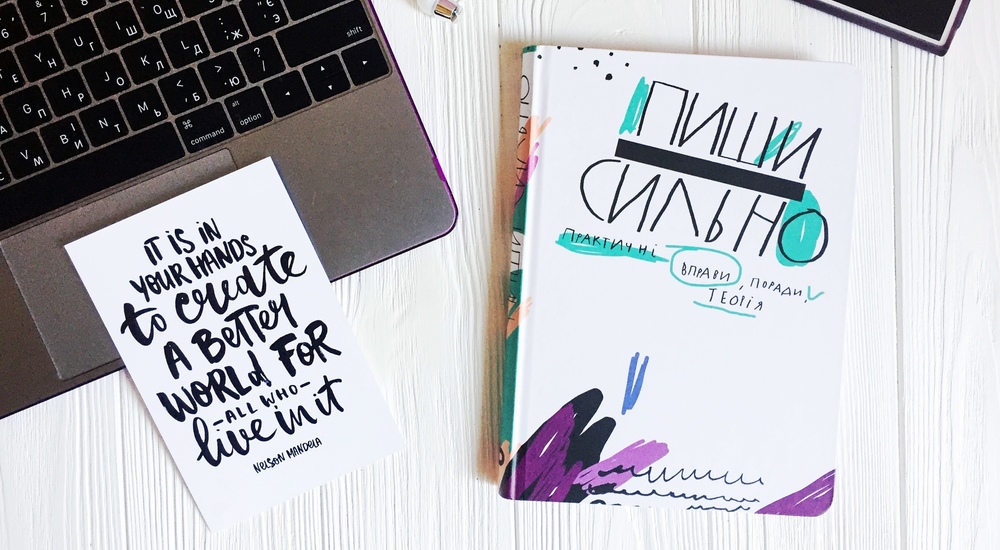 IT IS IN
YOUR HANDS
to create
A BETTER
WORLD FOR
-ALL WHO-
live in it
NELSON MANDELA
ПИШИ
СИЛЬНО
ПРАКТИЧНІ
ВПРАВИ, ПОРАДИ,
ТЕОРІЯ
shift
alt
command option